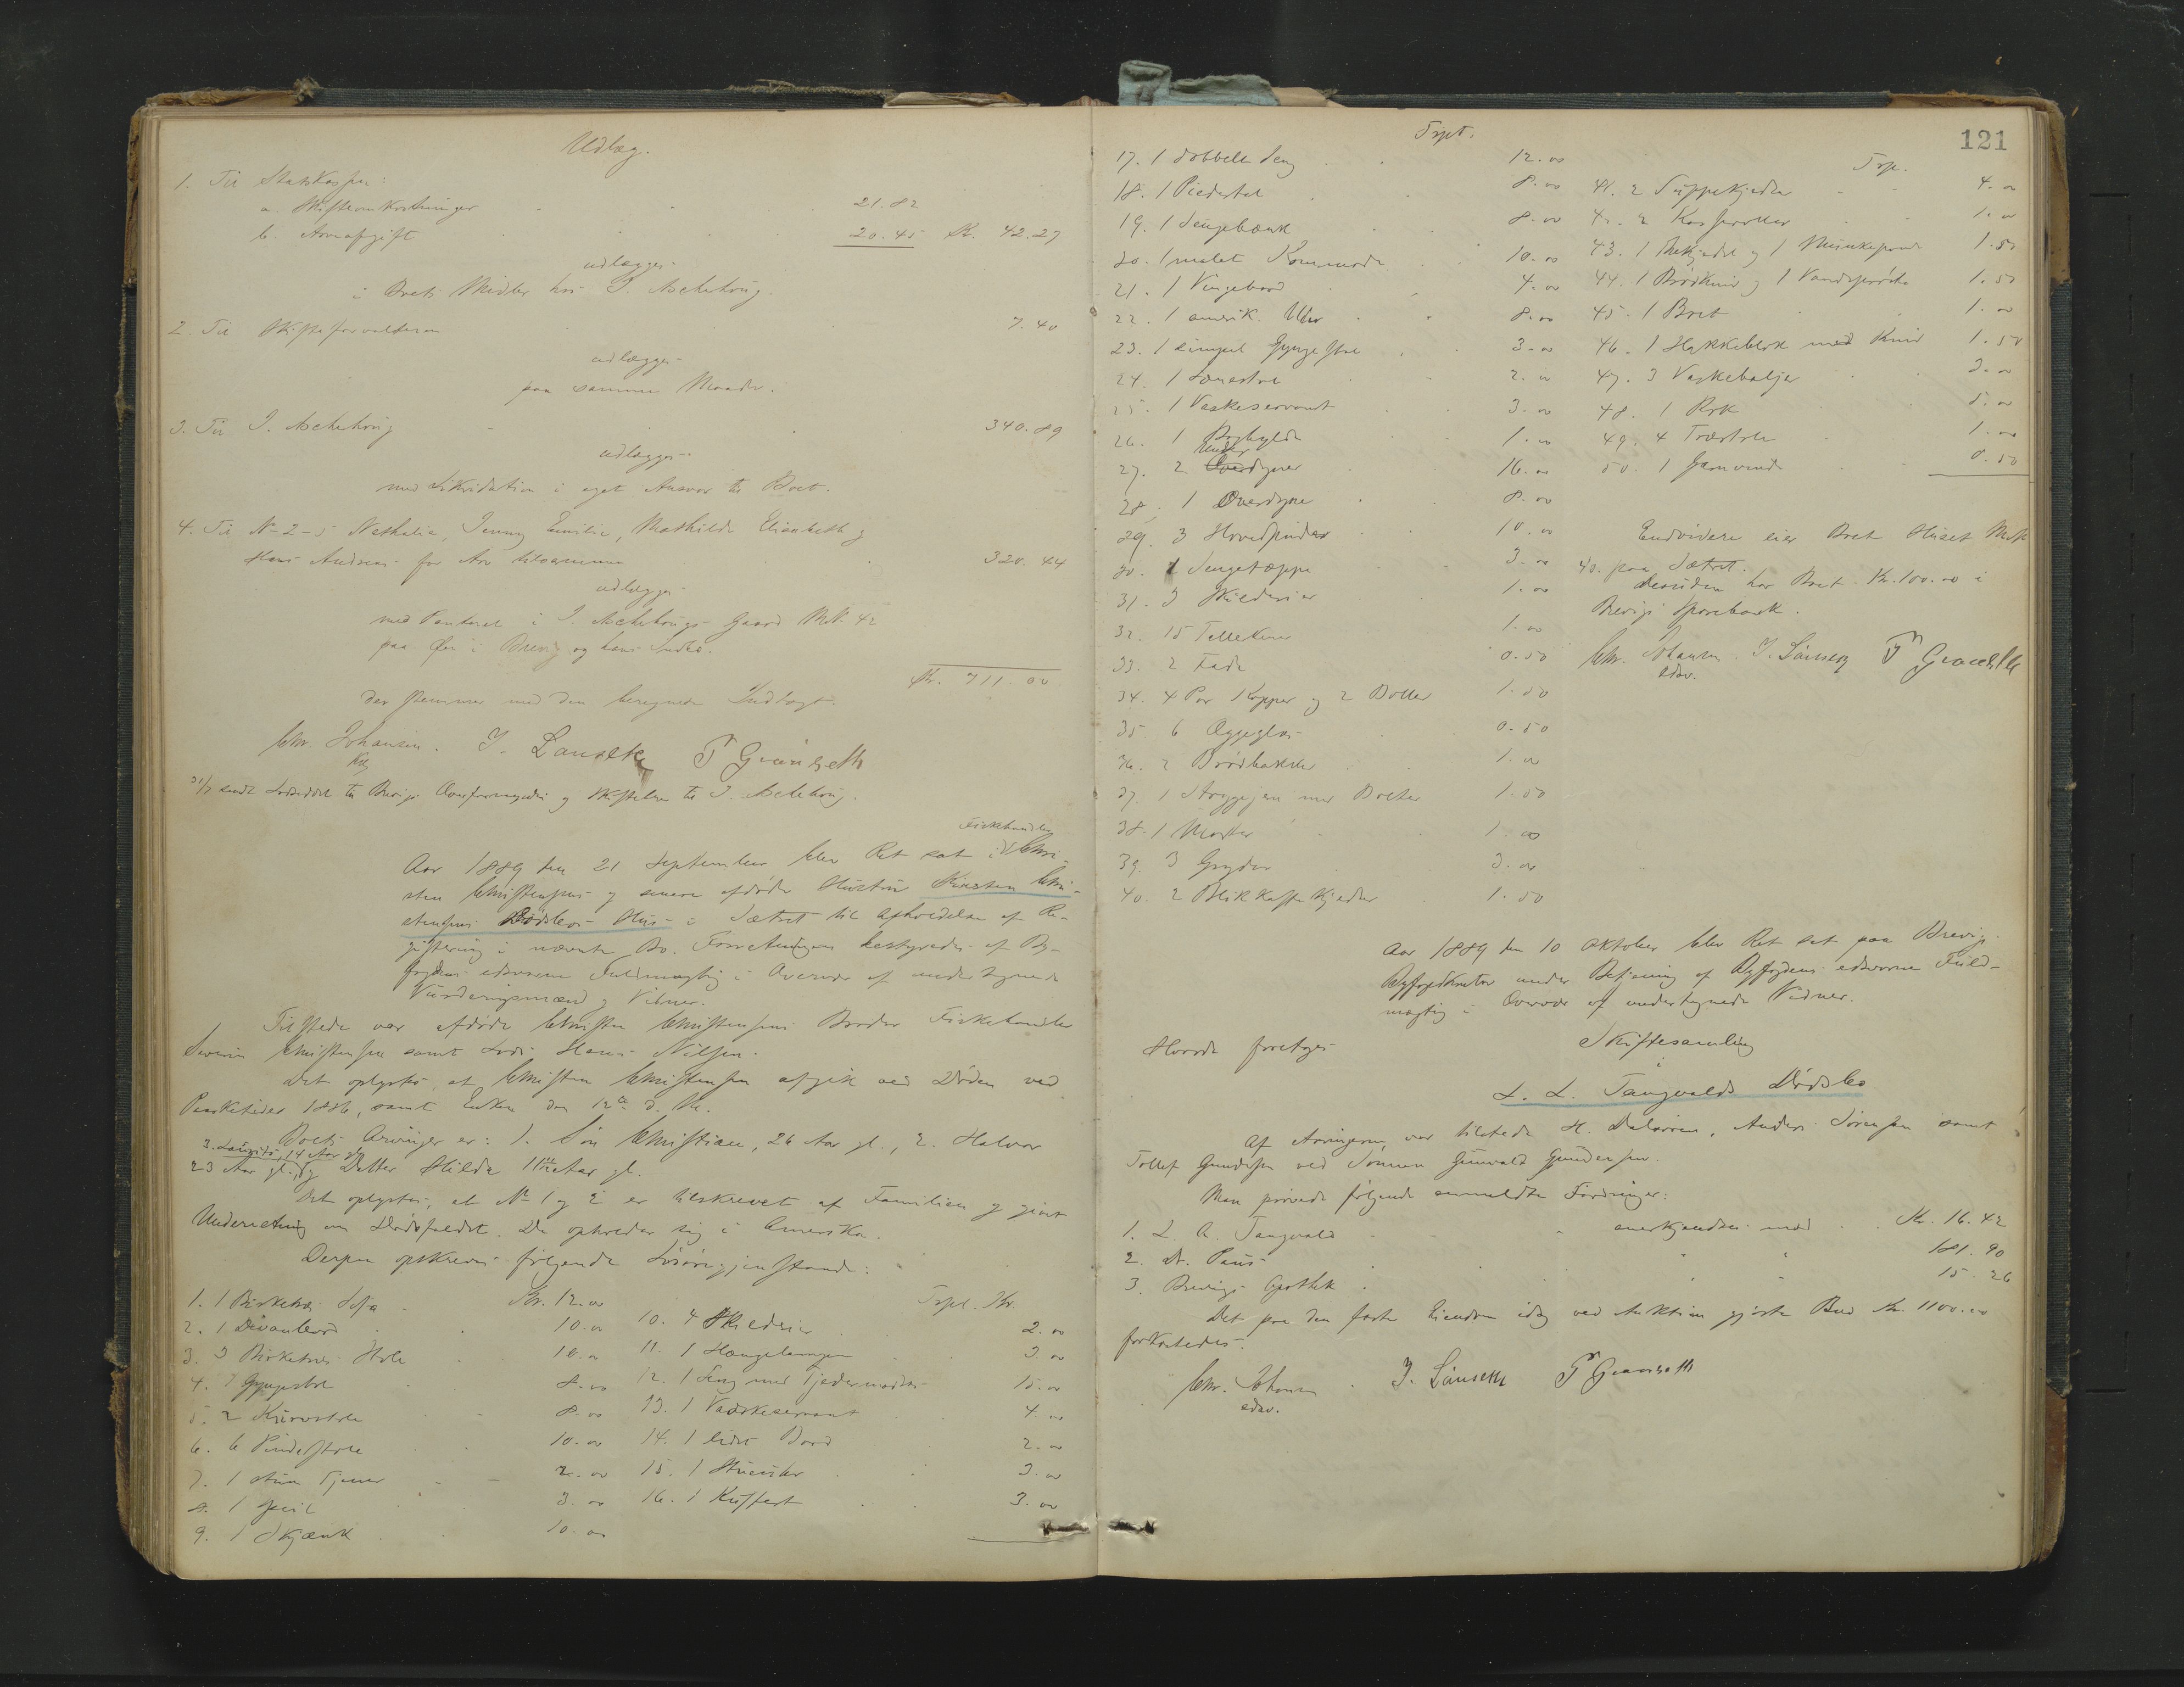 Udlæg.
1. Til Statskassen:
a. Skifteomkostninger 21.82
b. Arveafgift 20.45 Kr. 42.27
udlægges
i Boets Midler hos J. Aschehoug.
2. Til Skifteforvalteren 7.40
udlægges
paa samme Maade.
3. Til J. Aschehoug 340.89
udlægges
med Likvidation i eget Ansvar til Boet.
4. Til No 2-5 Nathalie, Jenny Emilie, Mathilde Elisabeth og
Hans Andreas for Arv tilsammen 320.44
udlægges
med Panteret i J. Aschehougs Gaard M.N. 42
paa Øen i Brevig og hans
Kr. 711.00
der stemmer med den beregnede Indtægt.
Chr. Johansen. J. Lauseth P Granseth
31/7 sendt Lodseddel til Brevigs Overformynderi og Skiftebrev til J. Aschehoug.
Fiskehandler
Aar 1889 den 21 September blev Ret sat i Chri-
sten Christensens og senere afdøde Hustru Kirsten Chri-
stensens Dødsbos Hus i Sætret til Afholdelse af Re-
gistrering i nævnte Bo. Forretningen bestyredes af By-
fogdens edsvorne Fuldmægtig i Overvær af undertegnede
Vurderingsmænd og Vidner.
Tilstede var afdøde Christen Christensens Broder Fiskehandler
Severin Christensen samt Lods Hans Nilsen.
Det oplystes, at Christen Christensen afgik ved Døden ved
Paasketider 1886, samt Enken den 12te d. M.
Boets Arvinger er: 1. Søn Christian, 26 Aar gl., 2. Halvor
3. Lauritz, 14 Aar gl.
23 Aar gl., og Datter Hilda 11 Aar gl.
Det oplystes, at No 1 og 2 er tilskrevet af Familien og givet
Underretning om Dødsfaldet. De opholder sig i Amerika.
Derpaa opskreves følgende Løsøregjenstande:
1. 1 Birketræs Sofa Kr. 12.00
2. 1 Divanbord 10.00
3. 3 Birketræs Stole 10.00
4. 1 Gyngestol 8.00
5. 2 Kurvstole 8.00
6. 6 Pindestole 10.00
7. 1 stum Tjener 2.00
8. 1 Speil 3.00
9. 1 Skjænk 10.00
Trpt. Kr.
10. 4 Skilderier 2.00
11. 1 Hængelampe 3.00
12. 1 Seng med Fjedermadras 15.00
13. 1 Vaskeservant 4.00
14. 1 lidet Bord 2.00
15. 1 Stueuhr 3.00
16. 1 Kuffert 3.00
121
Trpt.
17. 1 dobbelt Seng 12.00
18. 1 Piedestal 8.00
19. 1 Sengebænk 8.00
20. 1 malet Kommode 10.00
21. 1 Vingebord 4.00
22. 1 amerik. Uhr 8.00
23. 1 simpel Gyngestol 3.00
24. 1 Lænestol 2.00
25. 1 Vaskeservant 3.00
26. 1 Boghylde 1.00
27. 2 Underdyner 16.00
28. 1 Overdyne 8.00
29. 3 Hovedpuder 10.00
30. 1 Sengetæppe 3.00
31. 3 Skilderier 1.00
32. 15 Tellekener 1.00
33. 2 Fade 0.50
34. 4 Par Kopper og 2 Boller 1.50
35. 6 Æggeglas 0.50
36. 2 Brødbakker 1.00
37. 1 Strygejern med Bolter 1.50
38. 1 Morter 1.00
39. 3 Gryder 3.00
40. 2 Blikkaffekjedler 1.50
Trp.
41. 2 Suppekjedler 4.00
42. 2 Kasseroller 1.00
43. 1 Thekjedel og 1 Munkepande 1.50
44. 1 Brødkniv og 1 Vandspøtte 1.50
45. 1 Bret 1.00
46. 1 Hakkeblok med Kniv 1.50
47. 3 Vaskebaljer 3.00
48. 1 Rok 5.00
49. 4 Træstole 1.00
50. 1 Garnvinde 0.50
Endvidere eier Boet Huset M.N.
40. paa Sætret.
Desuden har Boet Kr. 100.00 i
Brevigs Sparebank.
Chr. Johansen J. Lauseth P Granseth
edsv.
Aar 1889 den 10 Oktober blev Ret sat paa Brevigs
Byfogedkontor under Betjening af Byfogdens edsvorne Fuld-
mægtig i Overvær af undertegnede Vidner.
Hvorda foretoges Skiftesamling
i
L. L. Tangvalds Dødsbo
Af Arvingerne var tilstede H. Dalsveen, Anders Sørensen samt
Tollef Gundersen ved Sønnen Gunvald Gundersen.
Man prøvede følgende anmeldte Fordringer:
1. L. A. Tangvald anerkjendtes med Kr. 16.42
2. Dr. Paus " " 181.90
3. Brevigs Apothek " " 15.26
Det paa den faste Eiendom idag ved Auktion gjorte Bud Kr. 1100.00
forkastedes.
Chr. Johansen J. Lauseth P Granseth
edsv.